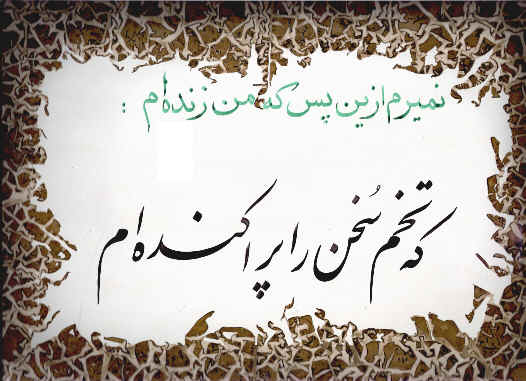 نمیرم ازین پس که من زنده‌ام :
که تخم سُخن را پراکنده‌ام